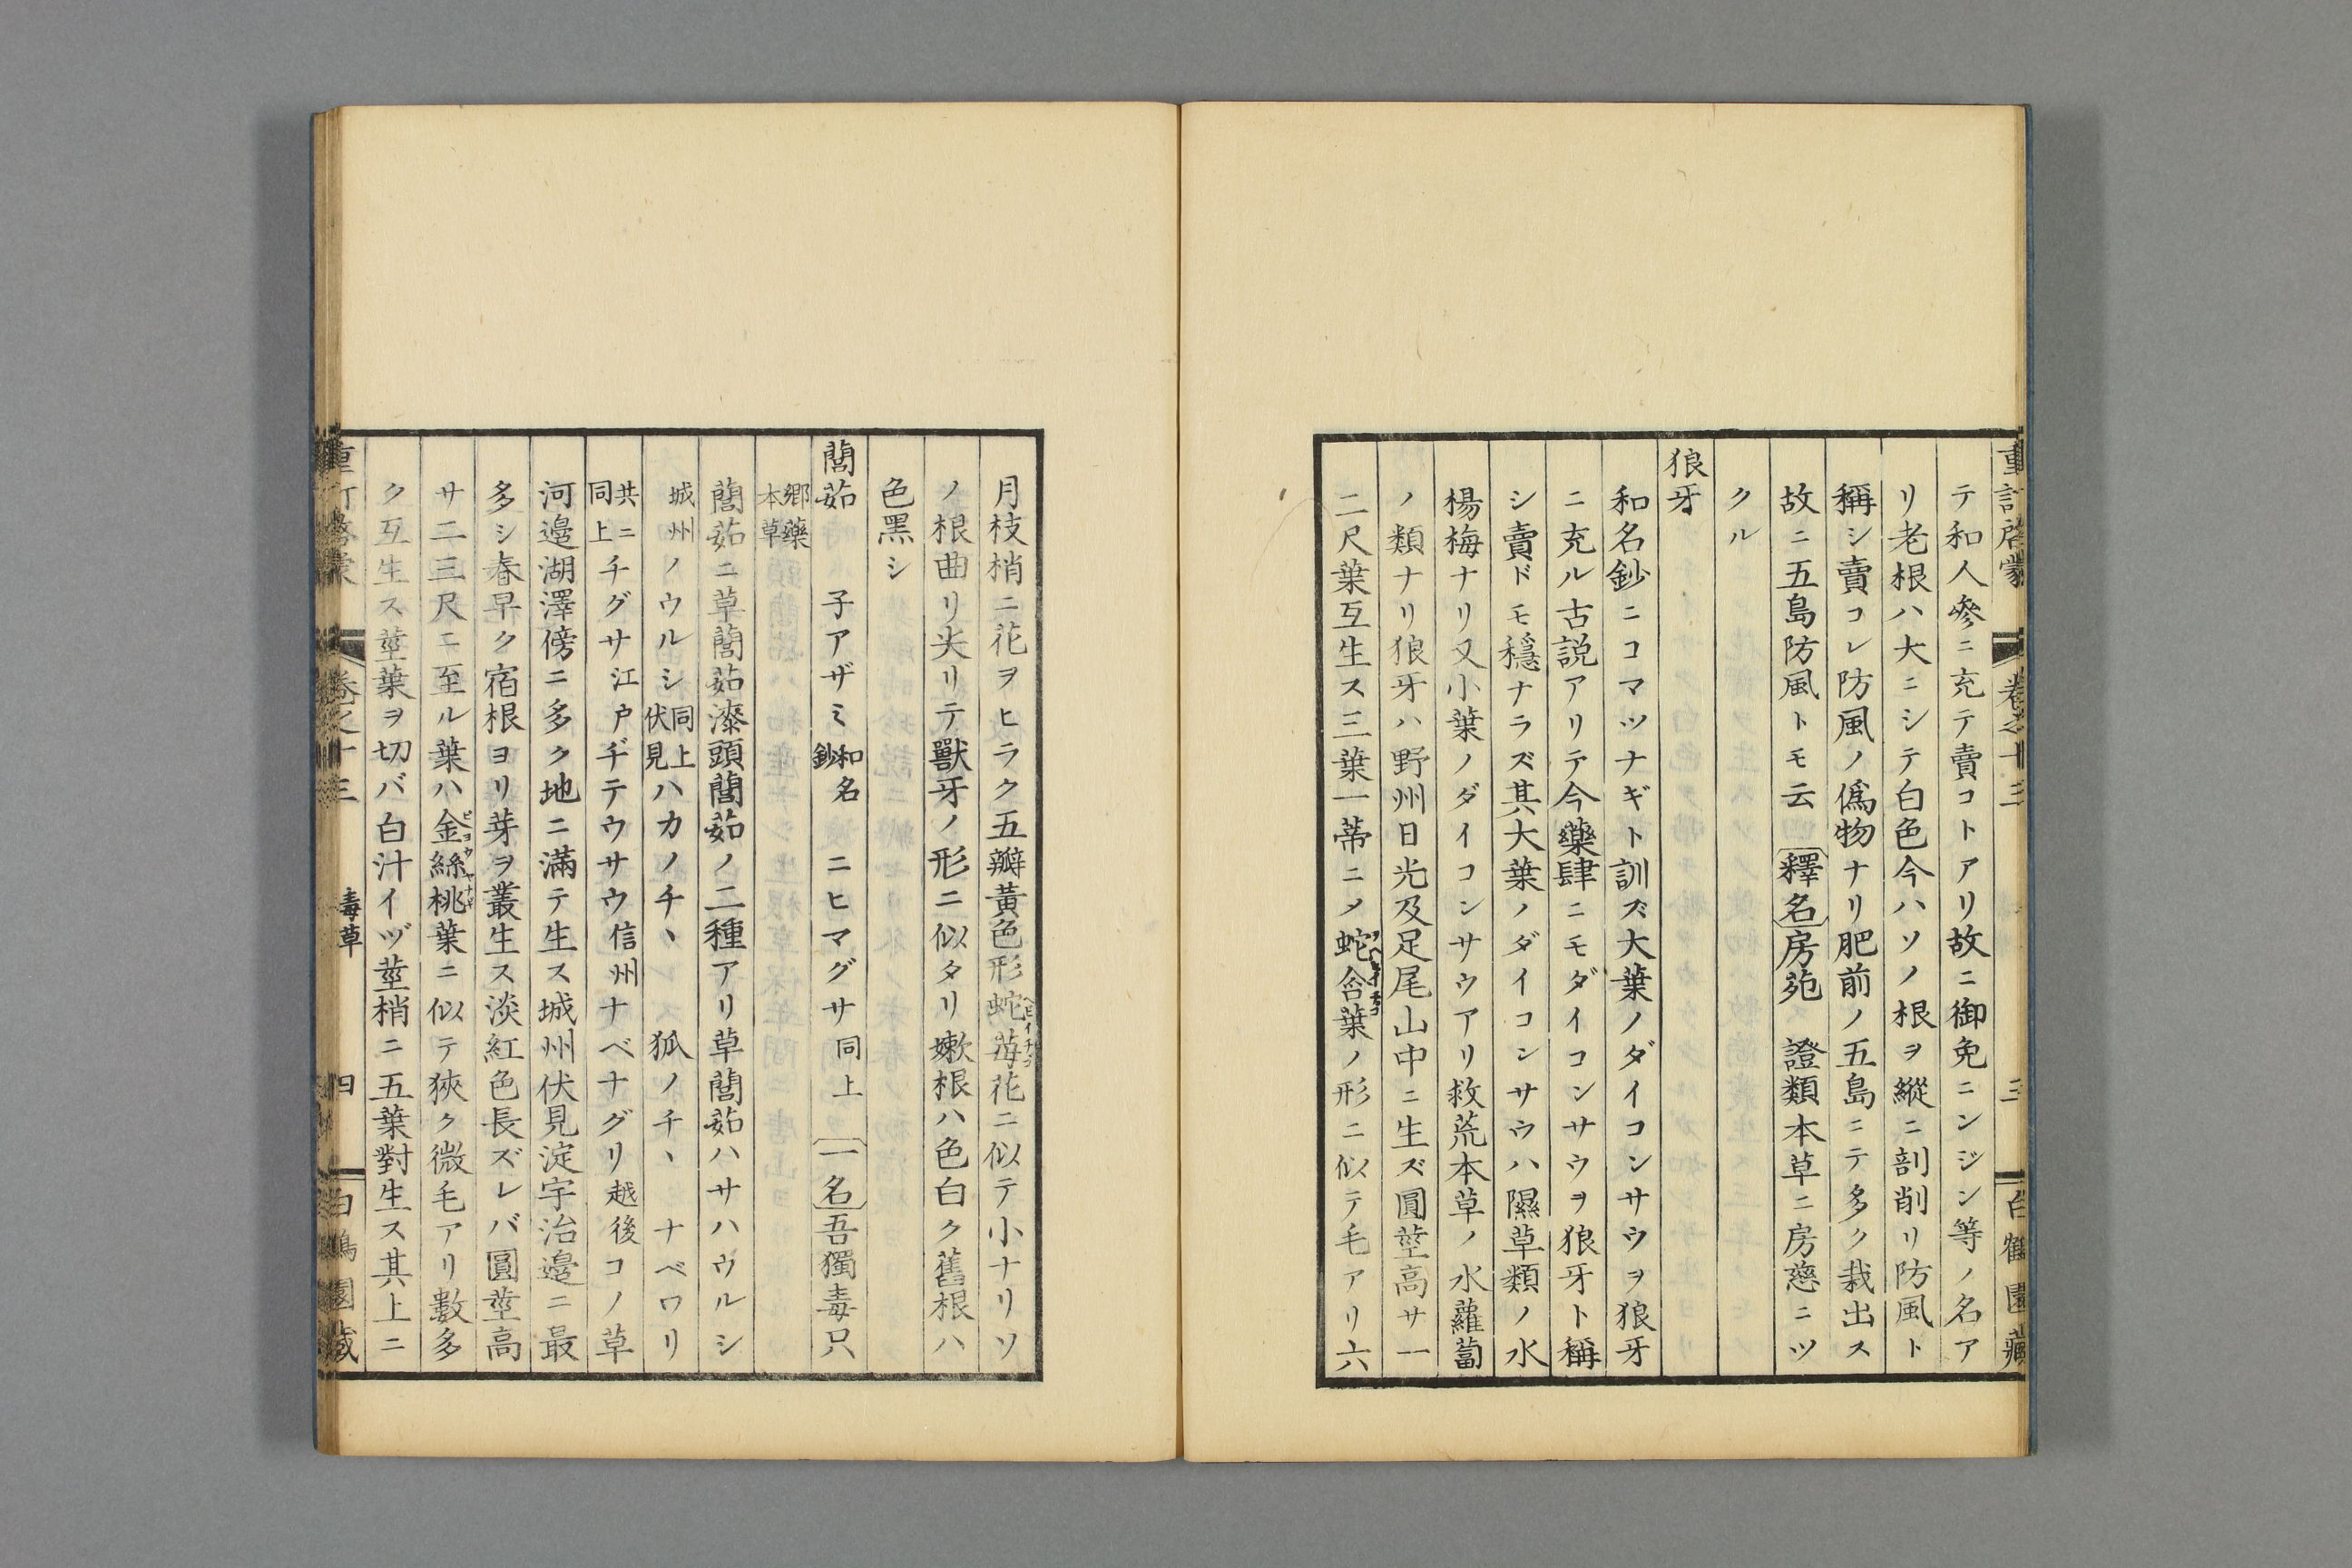 重訂啓蒙 卷之十三 三 白鶴園藏
テ和人參ニ充テ賣コトアリ故ニ御免ニンジン等ノ名ア
リ老根ハ大ニシテ白色今ハソノ根ヲ縱ニ剖削リ防風ト
稱シ賣コレ防風ノ僞物ナリ肥前ノ五島ニテ多ク栽出ス
故ニ五島防風トモ云 釋名 房苑 證類本草ニ房慈ニツ
クル
狼牙
和名鈔ニコマツナギト訓ズ大葉ノダイコンサウヲ狼牙
ニ充ル古説アリテ今藥肆ニモダイコンサウヲ狼牙ト稱
シ賣ドモ穩ナラズ其大葉ノダイコンサウハ隰草類ノ水
楊梅ナリ又小葉ノダイコンサウアリ救荒本草ノ水蘿蔔
ノ類ナリ狼牙ハ野州日光及足尾山中ニ生ズ圓莖高サ一
二尺葉互生ス三葉一蒂ニメ蛇含葉ノ形ニ似テ毛アリ六
月枝梢ニ花ヲヒラク五瓣黃色形蛇苺花ニ似テ小ナリソ
ノ根曲リ尖リテ獸牙ノ形ニ似タリ嫩根ハ色白ク舊根ハ
色黑シ
䕡茹 子アザミ 和名鈔 ニヒマグサ 同上 一名 吾獨毒只
鄉藥本草
䕡茹ニ草䕡茹漆頭䕡茹ノ二種アリ草䕡茹ハサハウルシ
城州 ノウルシ 同上伏見 ハカノチヽ 狐ノチヽ ナベワリ
共ニ同上 チグサ 江戸 ヂテウサウ 信州 ナベナグリ 越後 コノ草
河邊湖澤傍ニ多ク地ニ滿テ生ス城州伏見淀宇治邊ニ最
多シ春早ク宿根ヨリ芽ヲ叢生ス淡紅色長ズレバ圓莖高
サ二三尺ニ至ル葉ハ金絲桃葉ニ似テ狹ク微毛アリ數多
ク互生ス莖葉ヲ切バ白汁イヅ莖梢ニ五葉對生ス其上ニ
重訂啓蒙 卷之十三 毒草 四 白鶴園藏